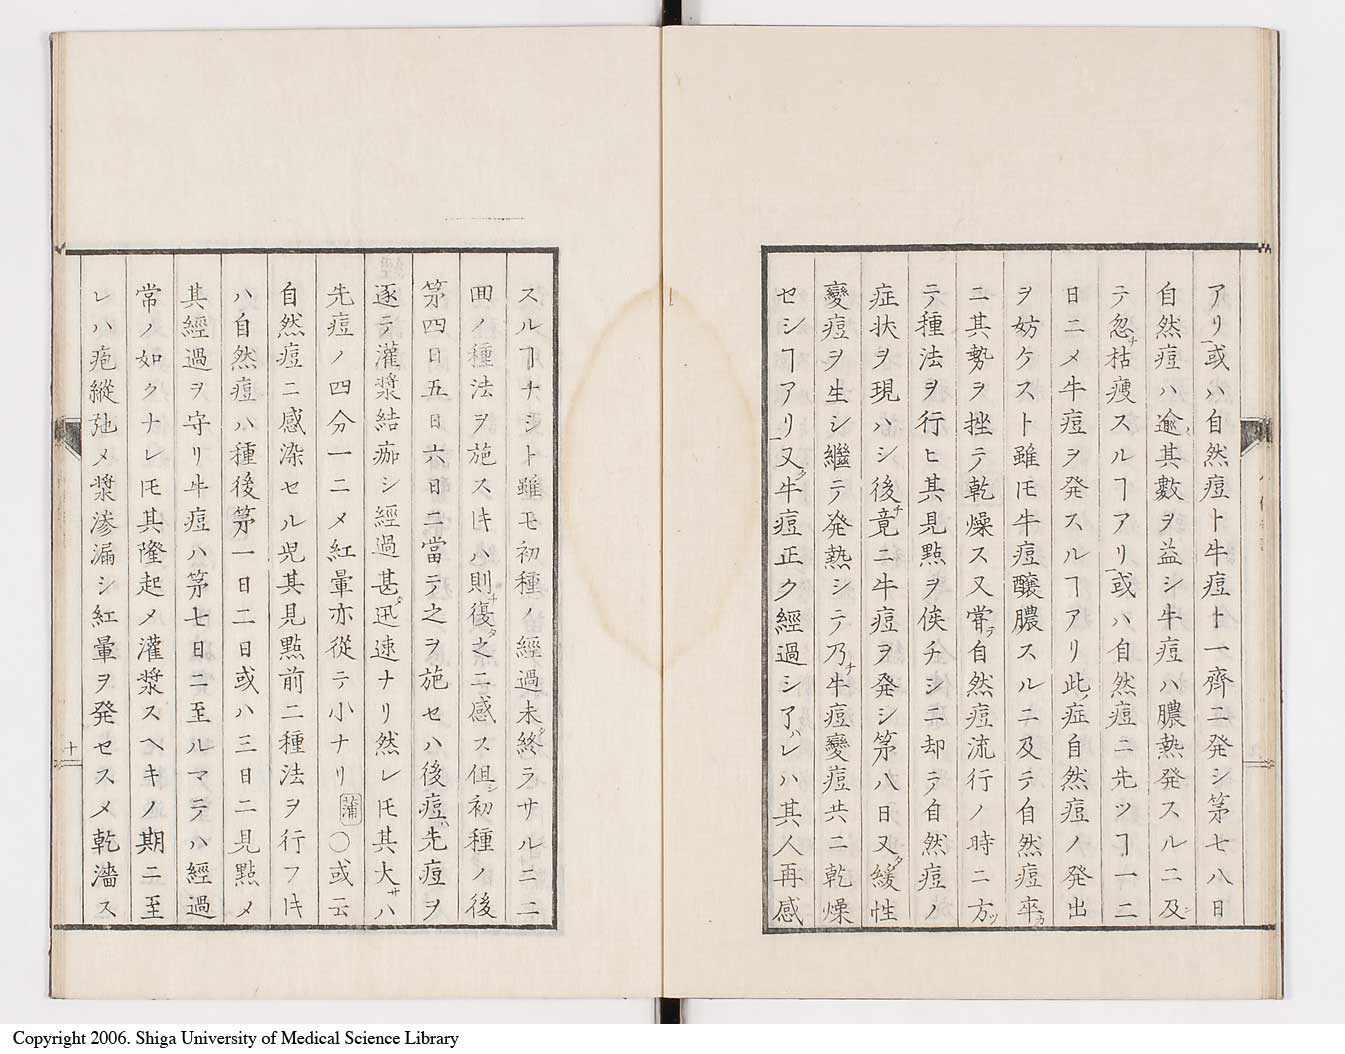 アリ或ハ自然痘ト牛痘ト一齊ニ発シ第七八日
自然痘ハ逾其數ヲ益シ牛痘ハ膿熱発スルニ及
テ忽枯痩スルヿアリ或ハ自然痘ニ先ツヿ一二
日ニメ牛痘ヲ発スルヿアリ此症自然痘ノ発出
ヲ妨ケスト雖𪜈牛痘釀膿スルニ及テ自然痘卒
ニ其勢ヲ挫テ乾燥ス又嘗自然痘流行ノ時ニ方
テ種法ヲ行ヒ其見點ヲ俟チシニ却テ自然痘ノ
症状ヲ現ハシ後竟ニ牛痘ヲ発シ第八日又緩性
變痘ヲ生シ繼テ発熱シテ乃牛痘變痘共ニ乾燥
セシヿアリ又牛痘正ク經過シアレハ其人再感
スルヿナシト雖モ初種ノ經過未終ラサルニニ
田ノ種法ヲ施スキハ則復之ニ感ス但初種ノ後
第四日五日六日ニ當テ之ヲ施セハ後痘先痘ヲ
逐テ灌漿結痂シ經過甚迅速ナリ然レ𪜈其大ハ
先痘ノ四分一ニメ紅暈亦從テ小ナリ蒲〇或云
自然痘ニ感染セル児其見點前ニ種法ヲ行フキ
ハ自然痘ハ種後第一日二日或ハ三日ニ見點メ
其經過ヲ守リ牛痘ハ第七日ニ至ルマテハ經過
常ノ如クナレ𪜈其隆起メ灌漿スヘキノ期ニ至
レハ疱縱弛メ漿滲漏シ紅暈ヲ発セスメ乾濇ス
十
Copyright 2006. Shiga University of Medical Science Library